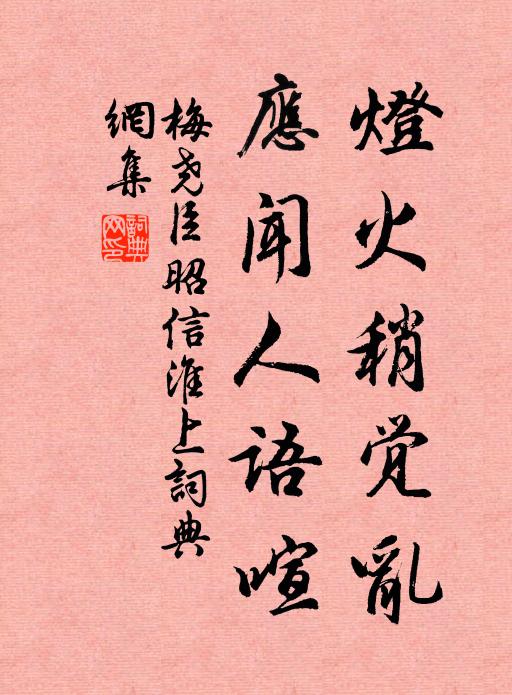 燈火稍覺亂
應闻人语喧
梅尧臣昭信淮上詞典
網集
詞典网印